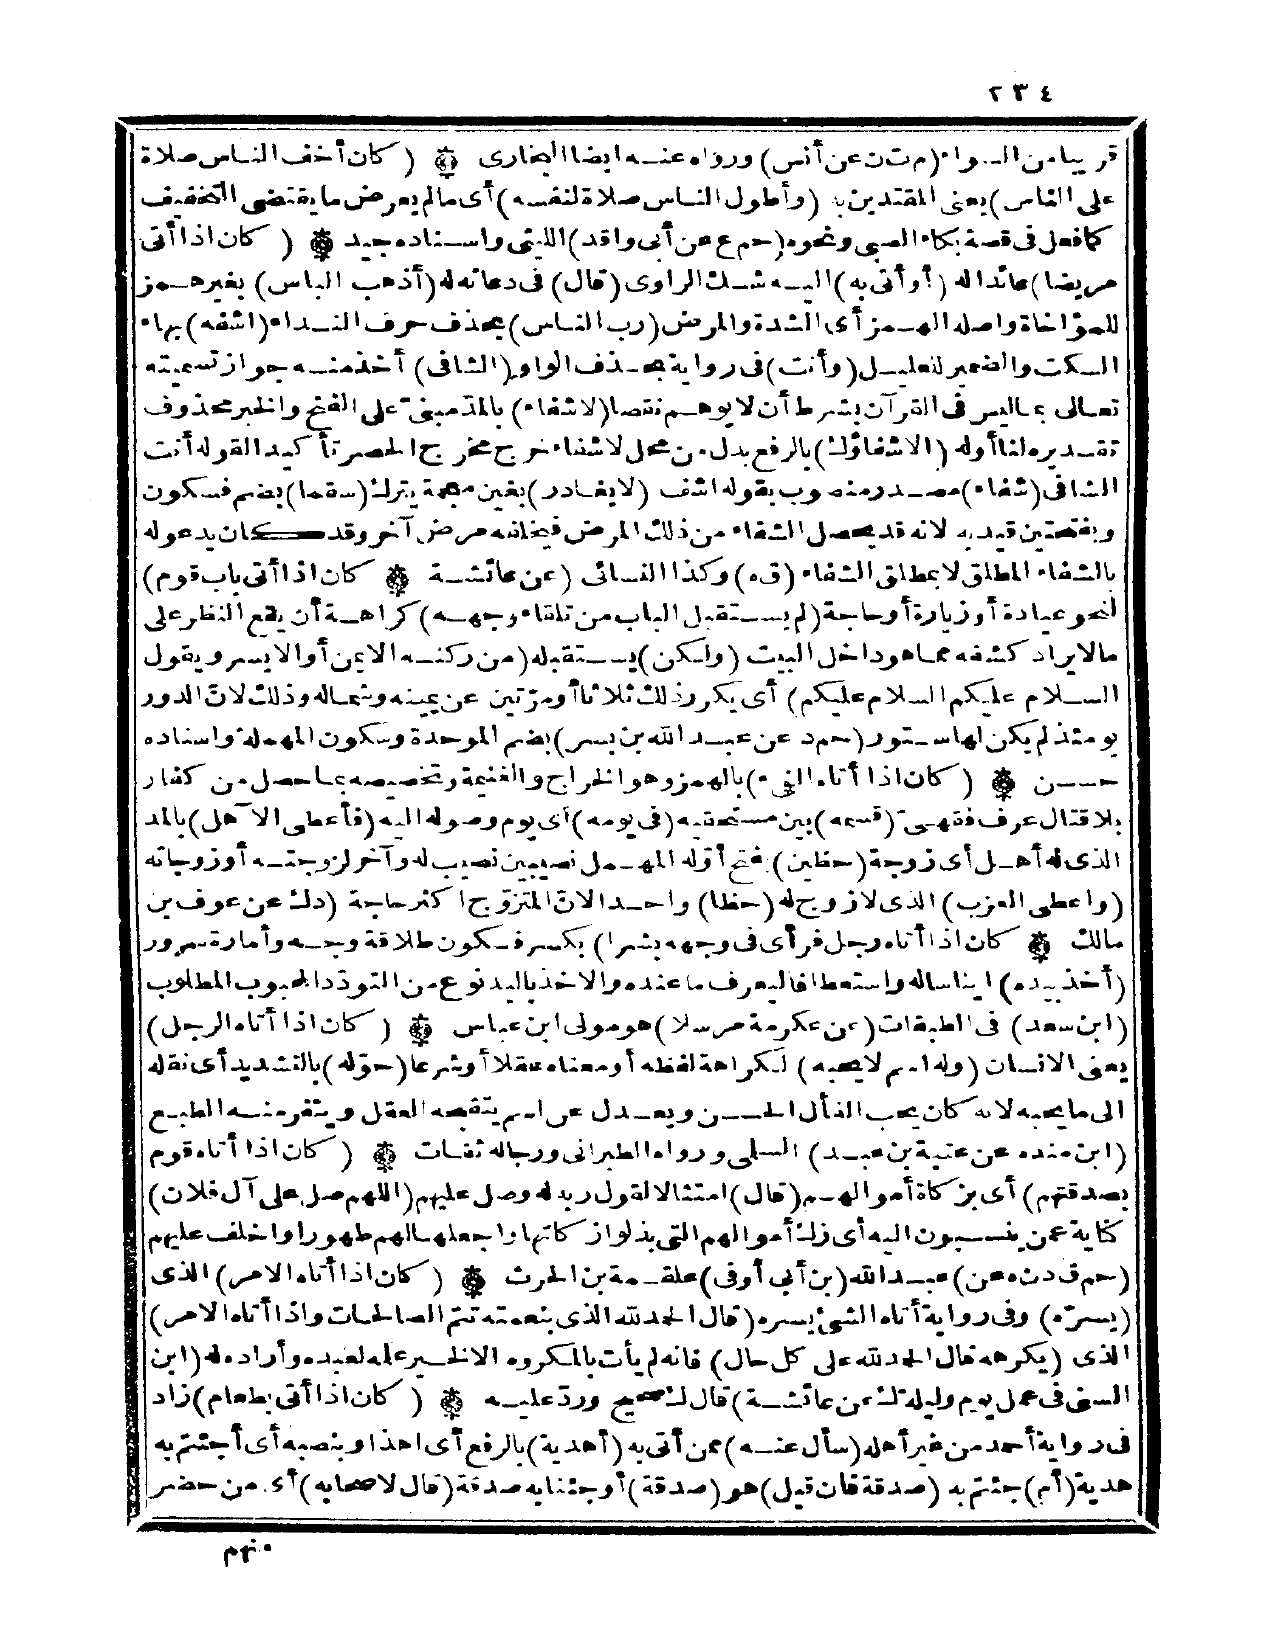 ٢٣٤
قريبا من السواء (م ت ن عن أنس) ورواه عنه ايضا البخارى ۞ (كان أخف الناس صلاة
على الناس) يعنى المقتدين به (وأطول الناس صلاة لنفسه) أى مالم يعرض ما يقتضى التخفيف
كما فعل فى قصة بكاء الصبى ونحوه (حم ع عن أبى واقد) الليثى واسناده جيد ۞ (كان اذا أتى
مريضا) عائدا له (أو أتى به) اليه شك الراوى (قال) فى دعائه له (أذهب الباس) بغير همز
للمؤاخاة واصله الهمز أى الشدة والمرض (رب الناس) بحذف حرف النداء (اشفه) بهاء
السكت والضمير للعليل (وأنت) فى رواية بحذف الواو (الشافى) أخذ منه جواز تسميته
تعالى بما ليس فى القرآن بشرط أن لا يوهم نقصا (لا شفاء) بالمد مبنى على الفتح والخبر محذوف
تقديره لنا أوله (الا شفاؤك) بالرفع بدل من محل لا شفاء خرج مخرج الحصر تأكيدا لقوله أنت
الشافى (شفاء) مصدر منصوب بقوله اشف (لا يغادر) بغين معجمة يترك (سقما) بضم فسكون
وبفتحتين قيد به لانه قد يحصل الشفاء من ذلك المرض فيخلفه مرض آخر وقد كان يدعو له
بالشفاء المطلق لا بمطلق الشفاء (ق ه) وكذا النسائى (عن عائشة ۞ كان اذا أتى باب قوم)
لنحو عيادة أو زيارة أو حاجة (لم يستقبل الباب من تلقاء وجهه) كراهة أن يقع النظر على
مالا يراد كشفه مما هو داخل البيت (ولكن) يستقبله (من ركنه الايمن أو الايسر ويقول
السلام عليكم السلام عليكم) أى يكرر ذلك ثلاثا أو مرتين عن يمينه وشماله وذلك لان الدور
يومئذ لم يكن لها ستور (حم د عن عبد الله بن بسر) بضم الموحدة وسكون المهملة واسناده
حسن ۞ (كان اذا أتاه الفىء) بالهمز وهو الخراج والغنيمة وتخصيصه بما حصل من كفار
بلا قتال عرف فقهى (قسمه) بين مستحقيه (فى يومه) أى يوم وصوله اليه (فأعطى الآهل) بالمد
الذى له أهل أى زوجة (حظين) بفتح أوله المهمل نصيبين نصيب له وآخر لزوجته أو زوجاته
(واعطى العزب) الذى لا زوج له (حظا) واحدا لان المتزوج اكثر حاجة (د ك عن عوف بن
مالك ۞ كان اذا أتاه رجل فرأى فى وجهه بشرا) بكسر فسكون طلاقة وجه وأمارة سرور
(أخذ بيده) ايناسا له واستعطافا ليعرف ما عنده والاخذ باليد نوع من التودد المحبوب المطلوب
(ابن سعد) فى الطبقات (عن عكرمة مرسلا) هو مولى ابن عباس ۞ (كان اذا أتاه الرجل)
يعنى الانسان (وله اسم لا يحبه) لكراهة لفظه أو معناه عقلا أو شرعا (حوله) بالتشديد أى نقله
الى ما يحبه لانه كان يحب الفأل الحسن ويعدل عن اسم يتقبحه العقل وينفر منه الطبع
(ابن منده عن عتبة بن عبد) السلمى ورواه الطبرانى ورجاله ثقات ۞ (كان اذا أتاه قوم
بصدقتهم) أى بزكاة أموالهم (قال) امتثالا لقول ربه له وصل عليهم (اللهم صل على آل فلان)
كناية عمن ينسبون اليه أى زك أموالهم التى بذلوا زكاتها واجعلها لهم طهورا واخلف عليهم
(حم ق د ن ه عن) عبد الله (بن أبى أوفى) علقمة بن الحرث ۞ (كان اذا أتاه الامر) الذى
(يسره) وفى رواية أتاه الشئ يسره (قال الحمد لله الذى بنعمته تتم الصالحات واذا أتاه الامر)
الذى (يكرهه قال الحمد لله على كل حال) فانه لم يأت بالمكروه الا لخير علمه لعبده وأراده له (ابن
السنى فى عمل يوم وليلة ك عن عائشة) قال ك صحيح ورد عليه ۞ (كان اذا أتى بطعام) زاد
فى رواية أحمد من غير أهله (سأل عنه) ممن أتى به (أهدية) بالرفع أى اهذا وبنصبه أى أجئتم به
هدية (أم) جئتم به (صدقة فان قيل) هو (صدقة) أو جئنا به صدقة (قال لاصحابه) أى من حضر